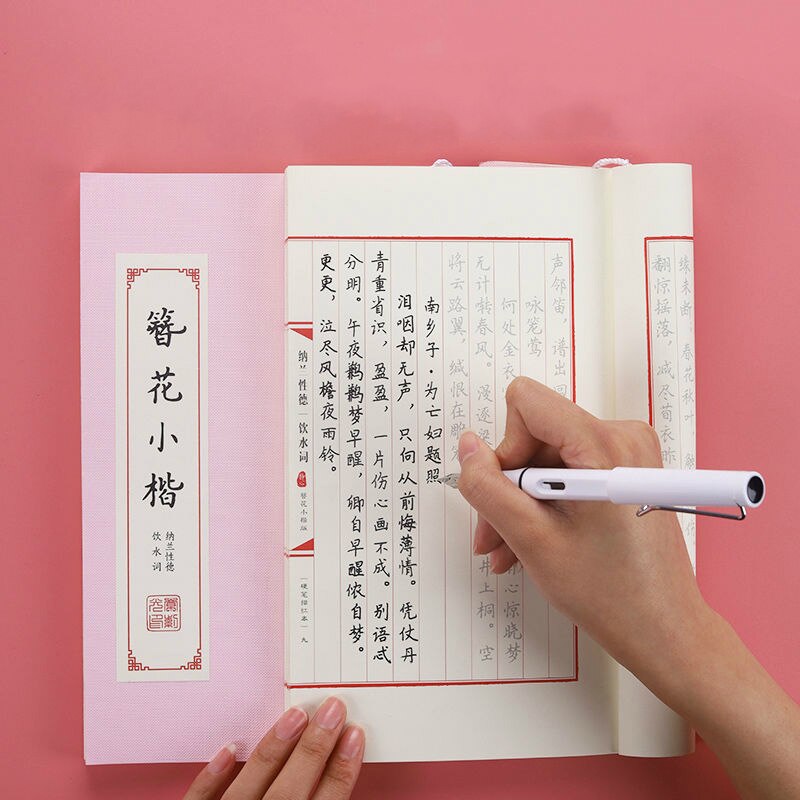 缘未断。春花秋叶，触
翻惊摇落，减尽荀衣昨
声邻笛，谱出回
咏笼莺
何处金衣 心惊晓梦
无计啭春风。漫逐梁 井上桐。空
将云路翼，缄恨在雕
南乡子·为亡妇题照
泪咽却无声，只向从前悔薄情。凭仗丹
青重省识，盈盈，一片伤心画不成。别语忒
分明。午夜鹣鹣梦早醒，卿自早醒侬自梦。
更更，泣尽风檐夜雨铃。
纳兰性德｜饮水词
簪花小楷版
硬笔描红本 九
簪花小楷
纳兰性德
饮水词